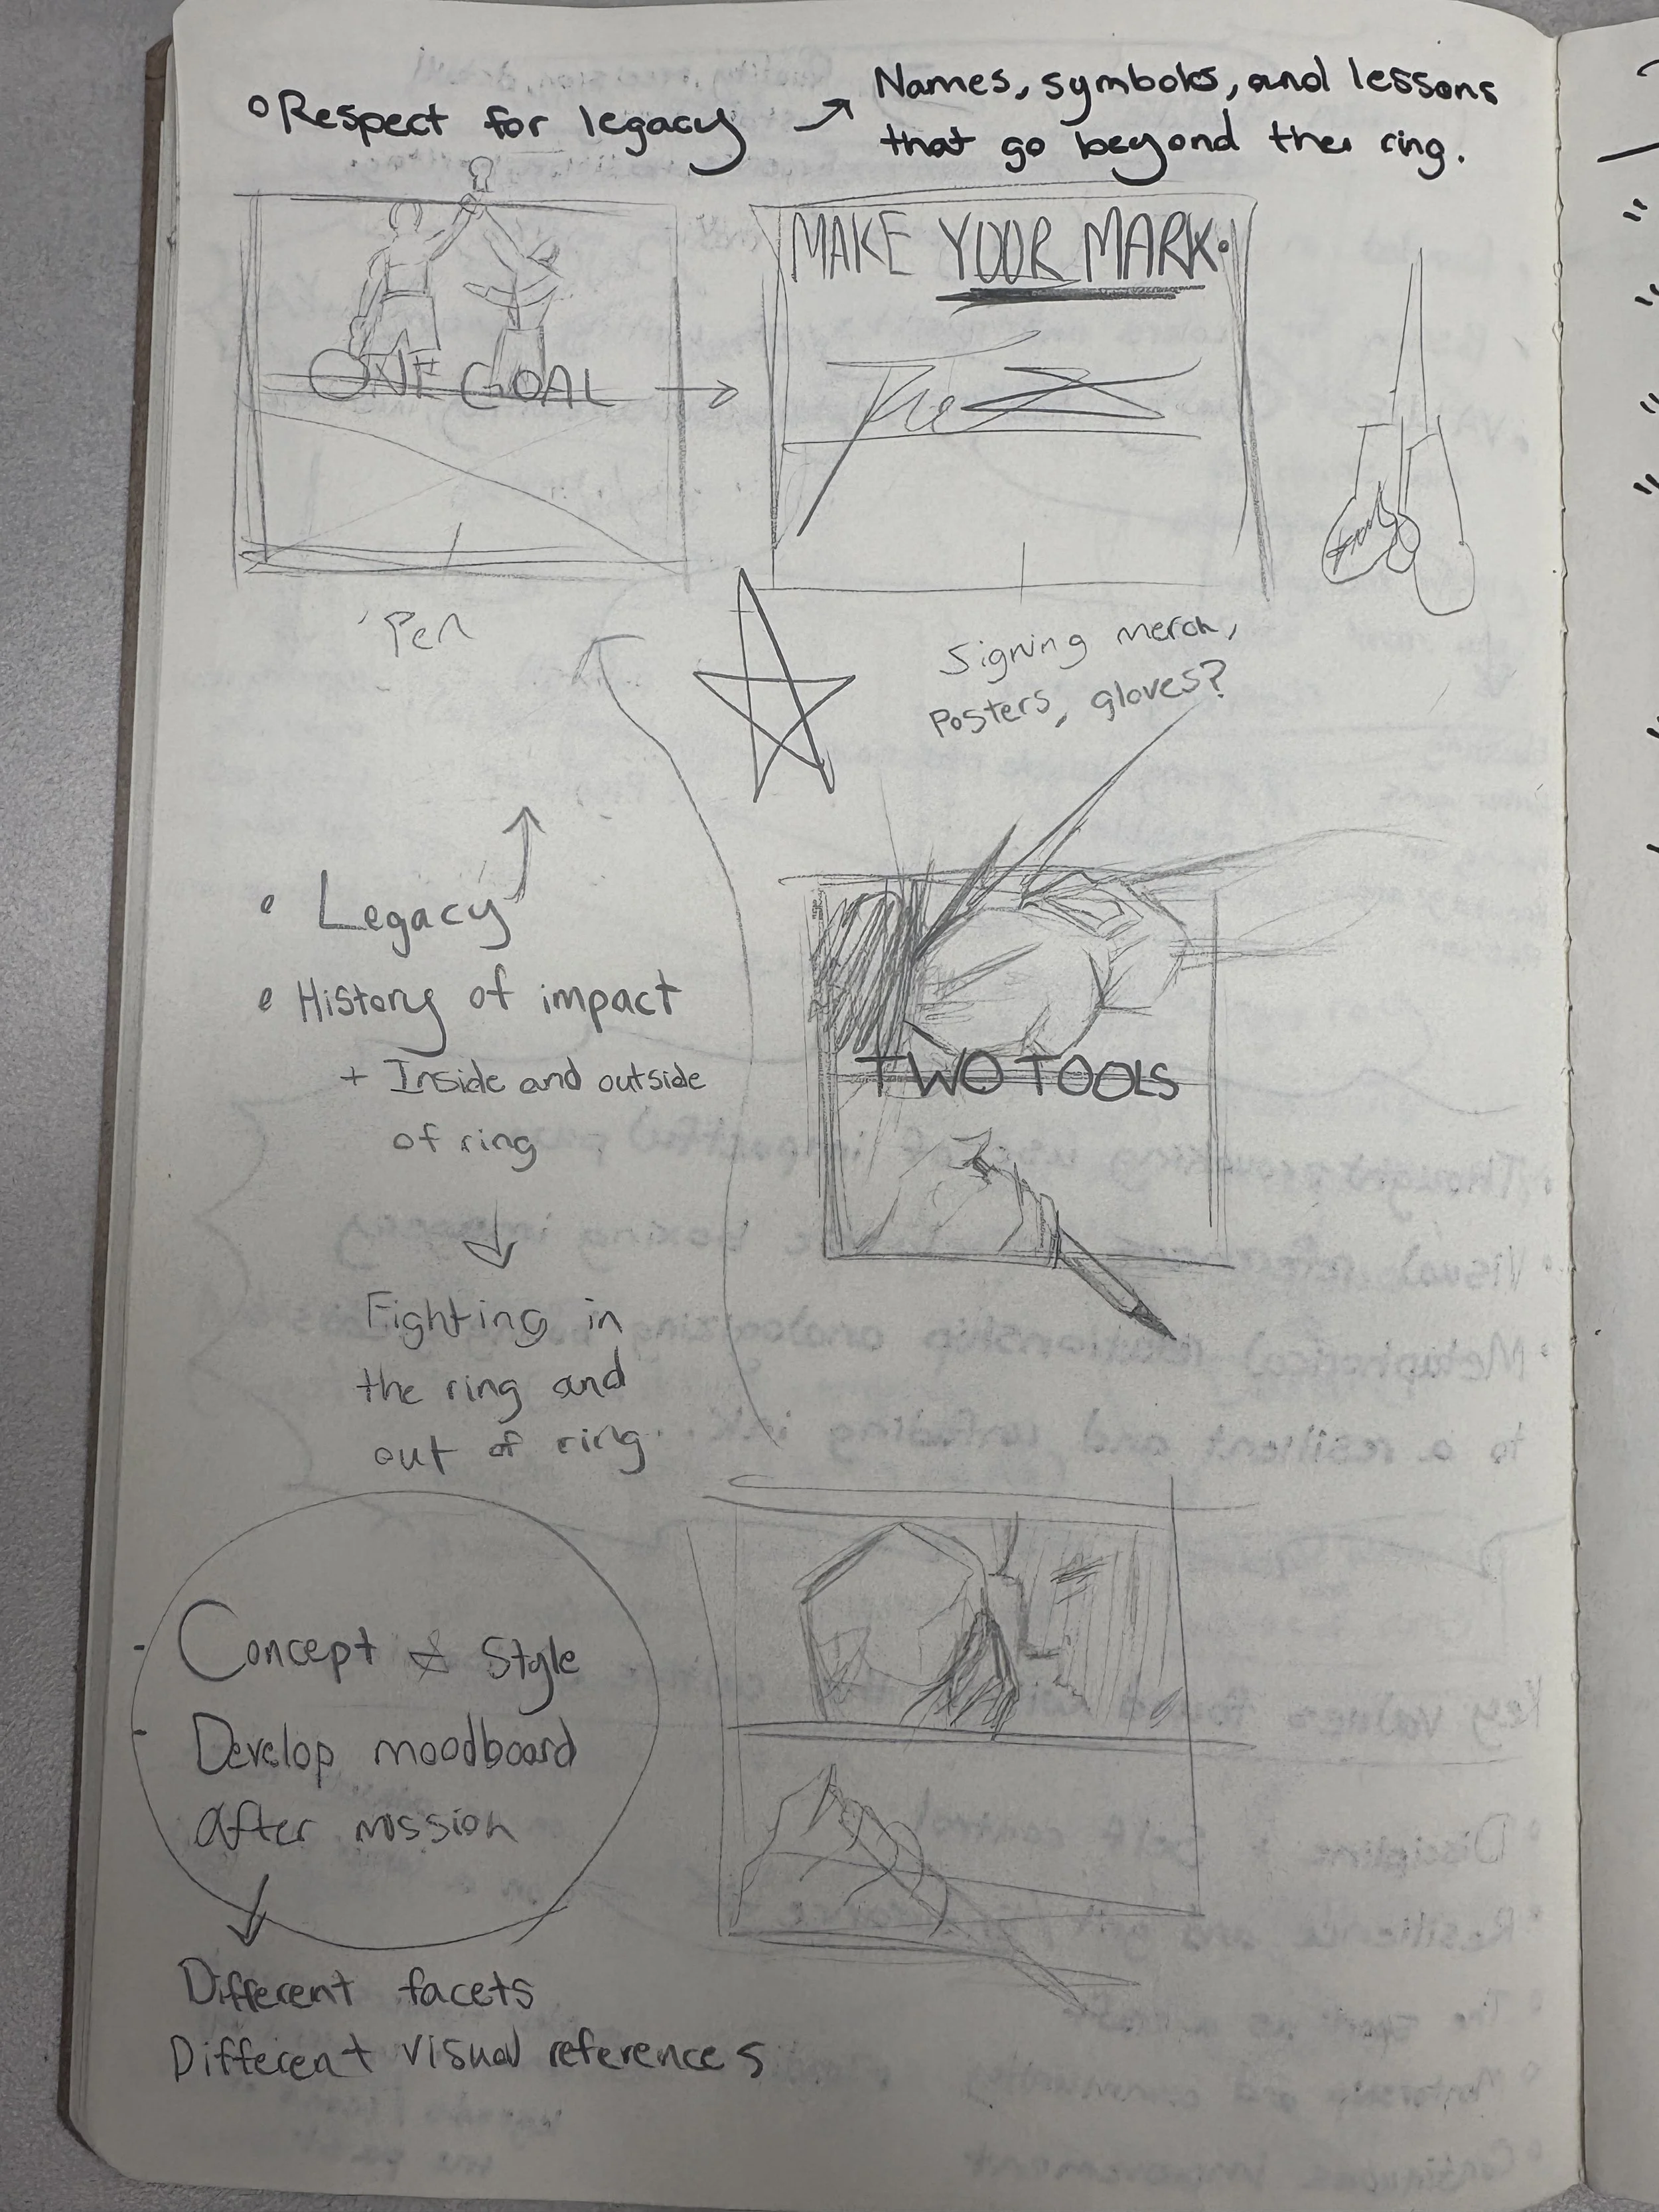 Respect for legacy → Names, symbols, and lessons
that go beyond the ring.
ONE GOAL →
MAKE YOUR MARK.
The
Pen
Signing merch,
Posters, gloves?
• Legacy
• History of impact
+ Inside and outside
of ring
Fighting in
the ring and
out of ring.
TWO TOOLS
- Concept & Style
- Develop moodboard
after mission
Different facets
Different visual references